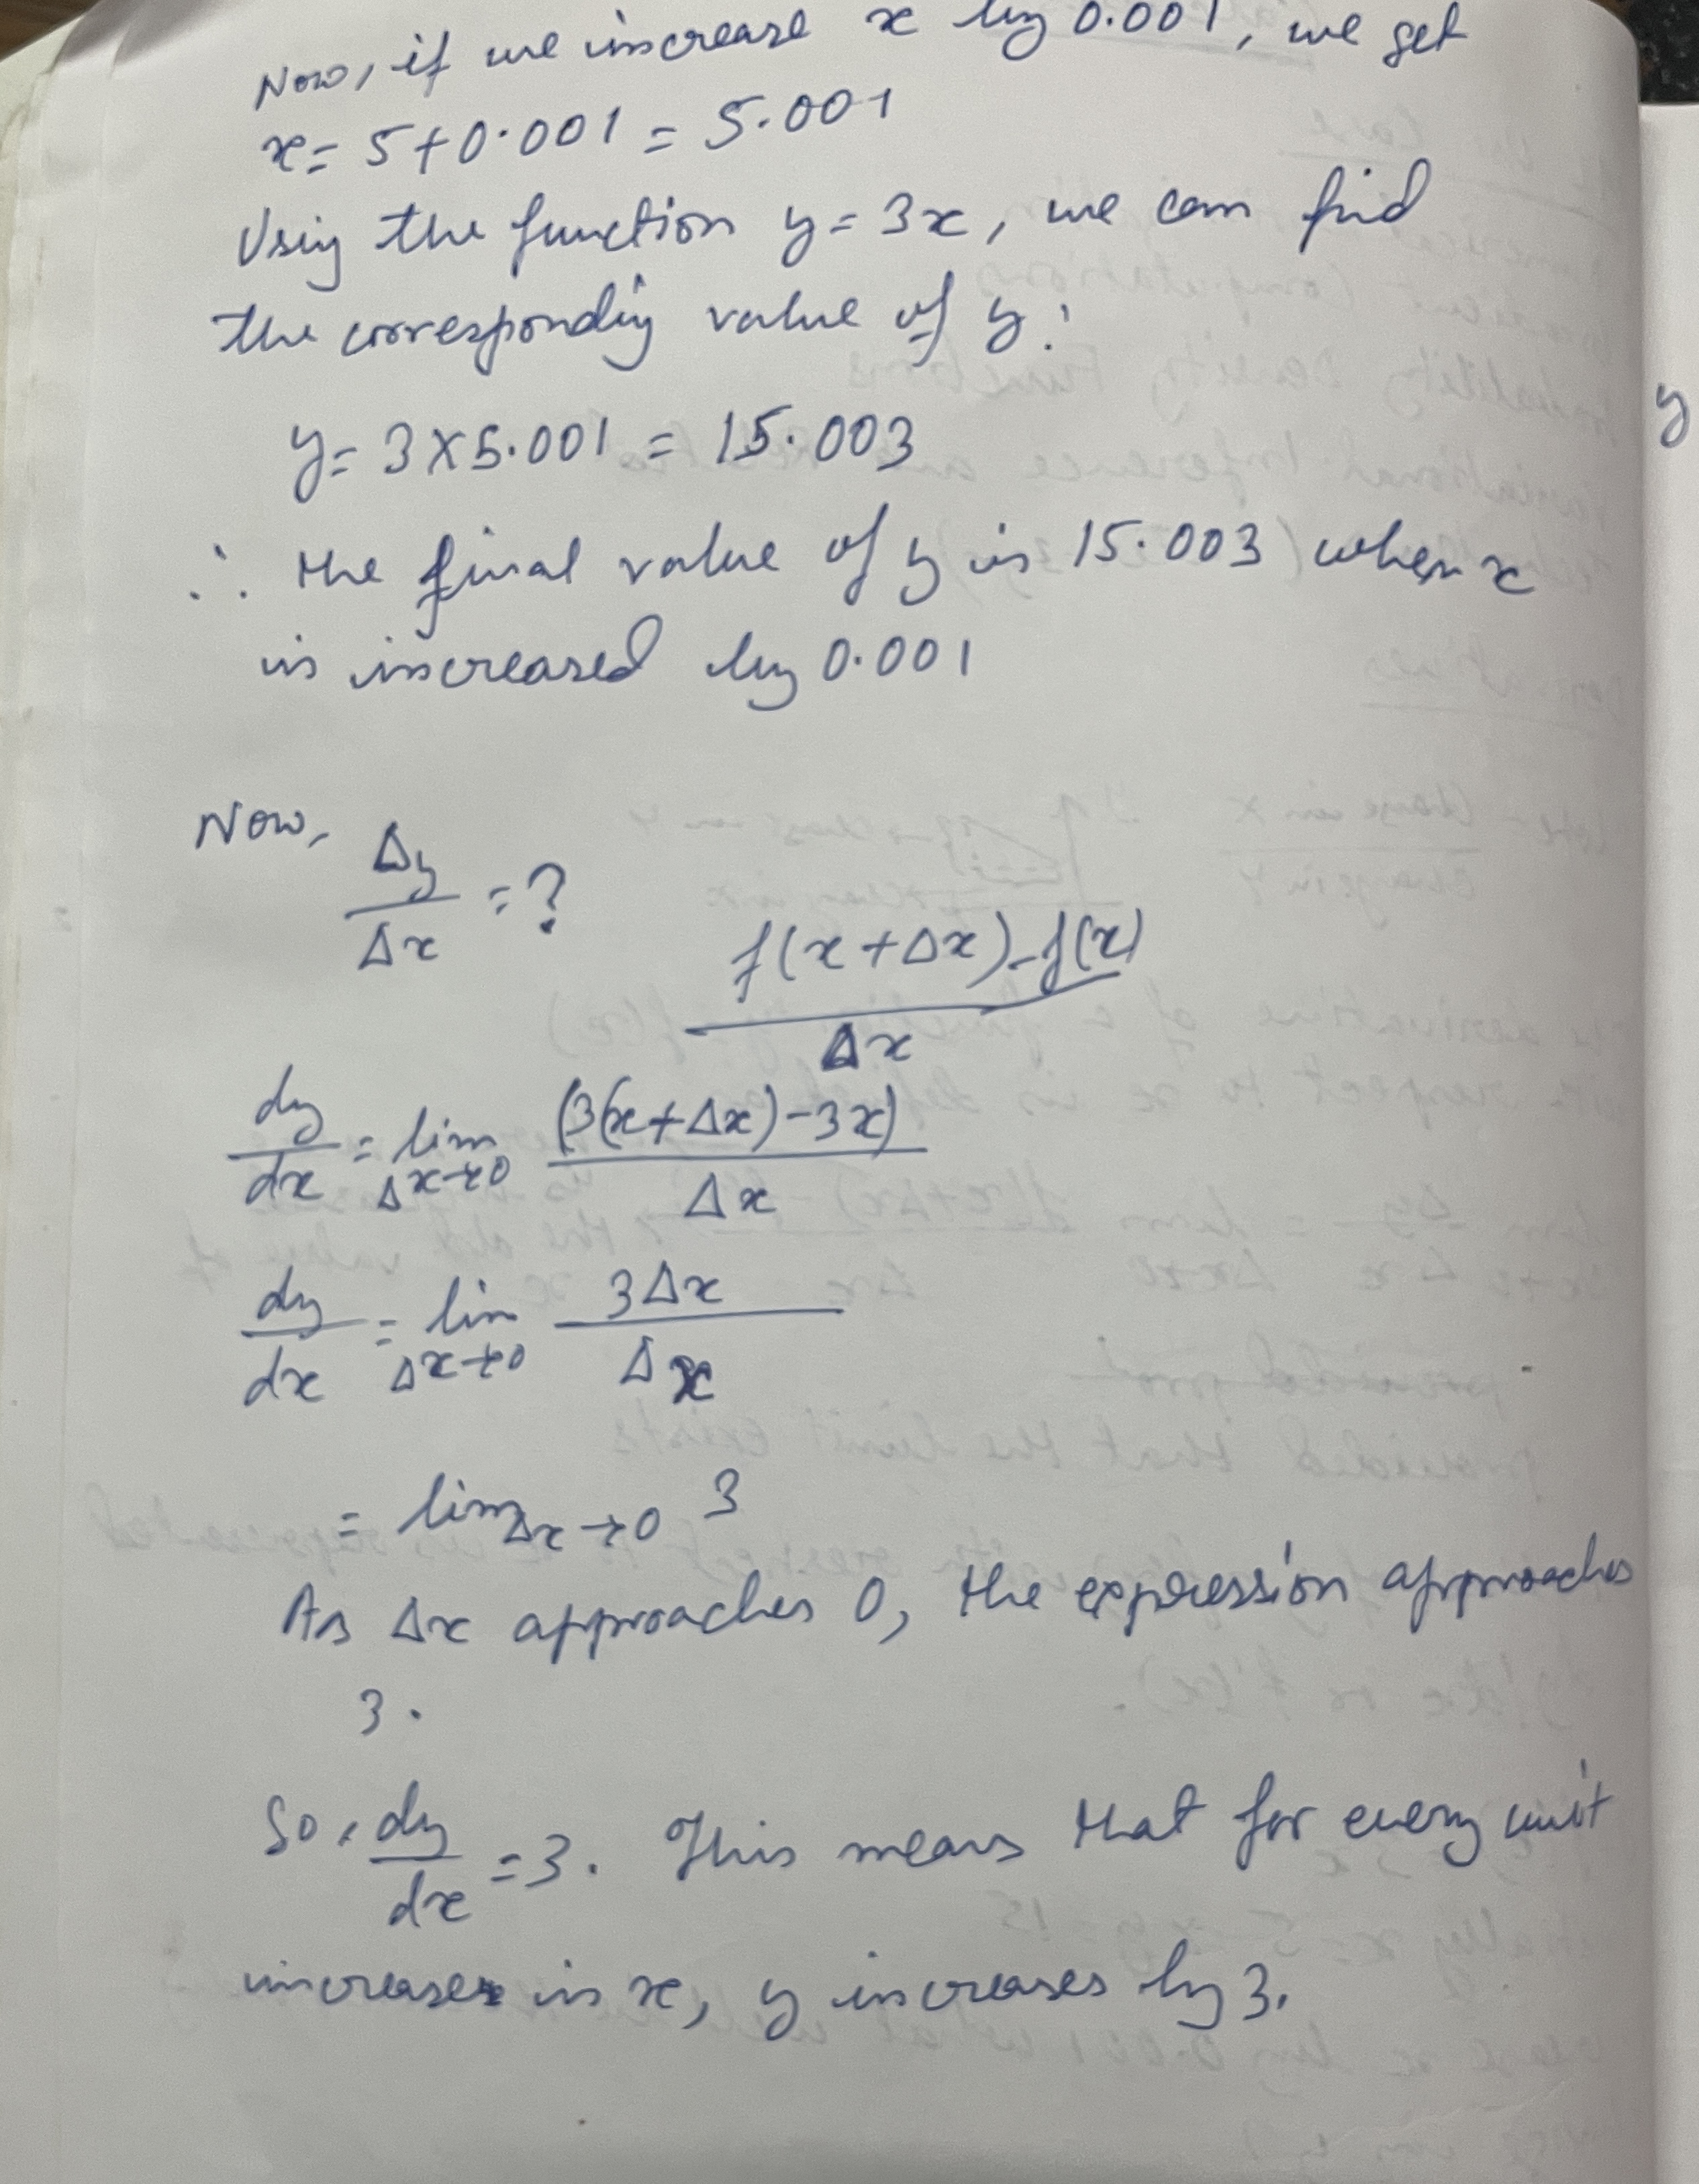 Now, if we increase x by 0.001, we get
x = 5+0.001 = 5.001
Using the function y = 3x, we can find
the corresponding value of y:
y = 3×5.001 = 15.003
∴ the final value of y is 15.003 when x
is increased by 0.001
Now,
Δy/Δx = ?
f(x+Δx)-f(x)/Δx
dy/dx = lim Δx→0 (3(x+Δx)-3x)/Δx
dy/dx = lim Δx→0 3Δx/Δx
= lim Δx→0 3
As Δx approaches 0, the expression approaches
3.
So, dy/dx = 3. This means that for every unit
increase in x, y increases by 3.
y